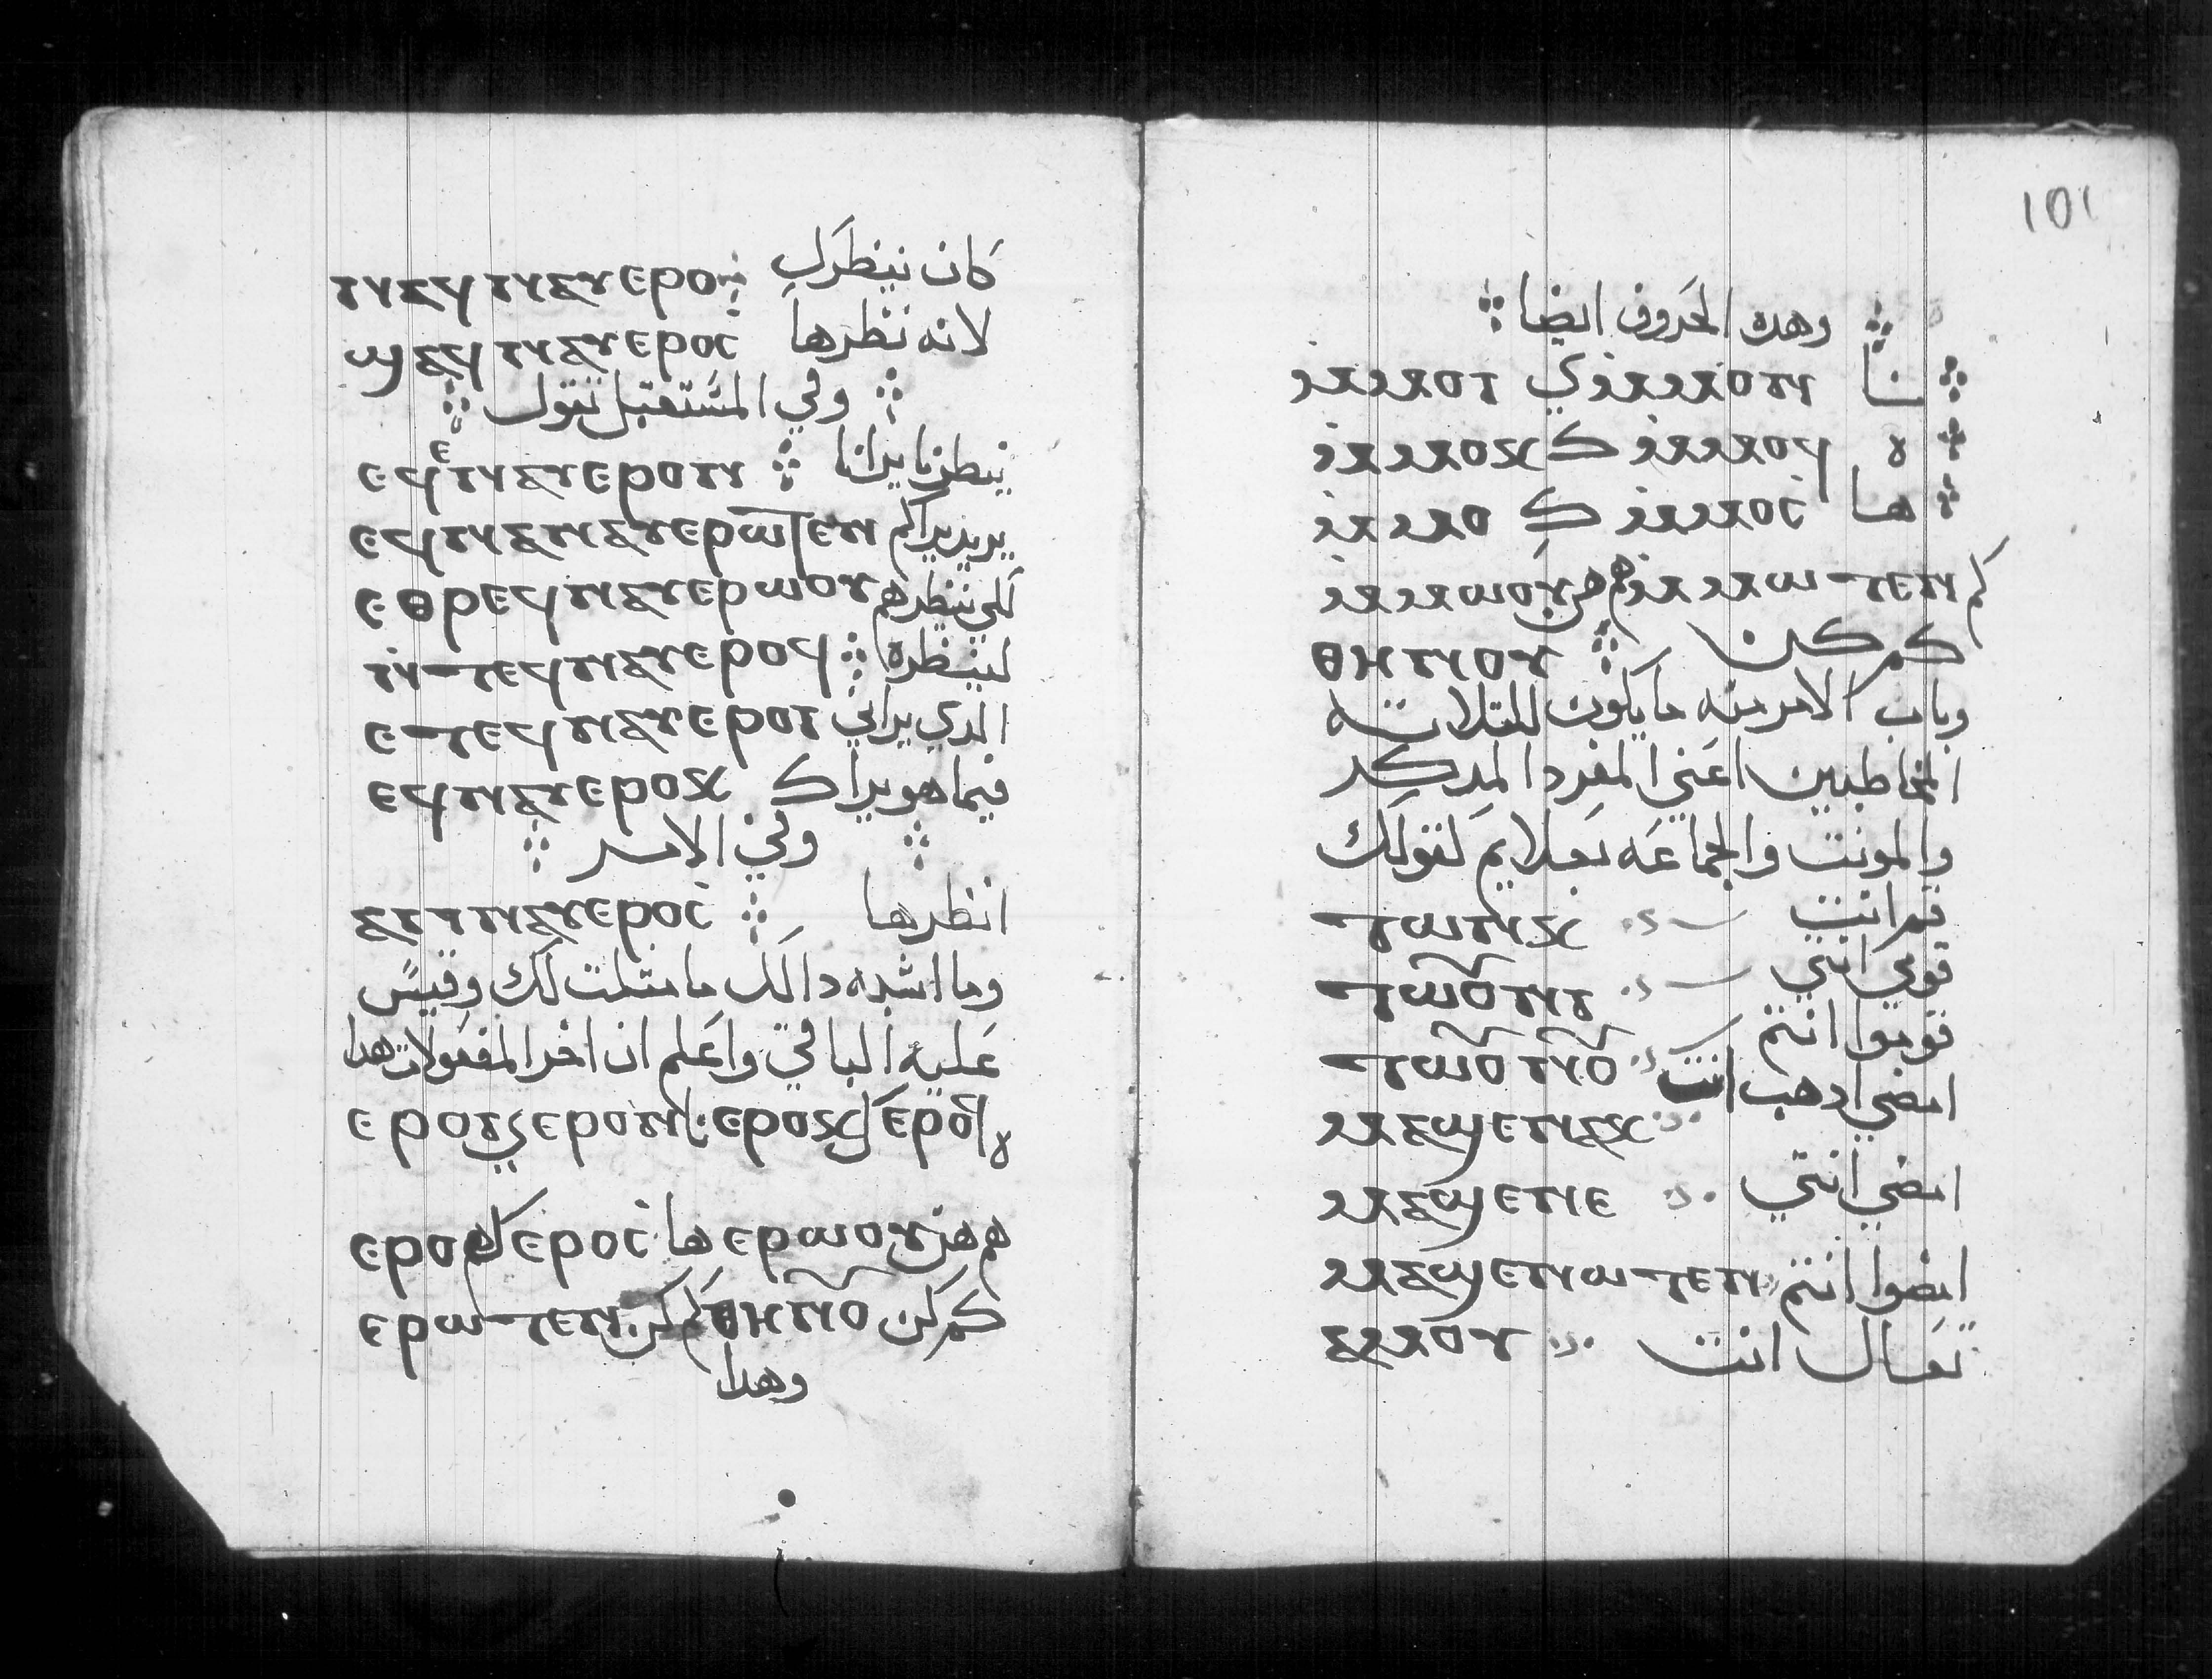 كان ينظرك ⲛⲁϥ ⲛⲁⲩⲉⲣⲟ
لانه نظرها ϣⲁϥ ⲛⲁⲩⲉⲣⲟⲥ
وفي المستقبل تقول
ينظرنا يرانا ⲉϥⲉⲛⲁⲩⲉⲣⲟⲛ
يريد يراكم ⲉϥⲛⲁⲛⲁⲩⲉⲣⲱⲧⲉⲛ
لكي ينظرهم ⲉⲑⲣⲉϥⲛⲁⲩⲉⲣⲱⲟⲩ
لينظره ⲛ̇ⲧⲉϥⲛⲁⲩⲉⲣⲟϥ
الدي يراني ⲉⲧⲉϥⲛⲁⲩⲉⲣⲟⲓ
فيما هو يراك ⲉϥⲛⲁⲩⲉⲣⲟⲕ
وفي الامر
انظرها
وما اشبه دالك ما متلت لك وقيس
عليه الباقي واعلم ان اخر المفعولات هدا
ه ⲉⲣⲟϥ ك ⲉⲣⲟⲕ نا ⲉⲣⲟⲛ ي ⲉⲣⲟⲓ
هم هن ⲉⲣⲱⲟⲩ ها ⲉⲣⲟⲥ ك ⲉⲣⲟ
كم كن ⲑⲏⲛⲟ︦ⲩ كم كن ⲉⲣⲱⲧⲉⲛ
وهدا
101
وهده الحروف ايضا
نا ⲙ̇ⲙⲙⲟⲛ ي ⲙ̇ⲙⲙⲟⲓ
ه ⲙ̇ⲙⲙⲟϥ ك ⲙ̇ⲙⲙⲟⲕ
ها ⲙ̇ⲙⲙⲟⲥ ك ⲙ̇ⲙⲙⲟ
كم ⲙ̇ⲙⲙⲱⲧⲉⲛ هم هن ⲙ̇ⲙⲙⲱⲟⲩ
كم كن ⲑⲏⲛⲟⲩ
وباب الامر منه ما يكون للتلاته
المخاطبين اعني المفرد المدكر
والمونت والجماعه بعلايم لقولك
قم انت ⲧⲱⲛⲕ
قومي انتي ⲧⲱⲟⲩⲛⲓ
قوموا انتم ⲧⲱⲟⲩⲛⲟⲩ
امضي ادهب انت ⲙⲁϣⲉⲛⲁⲕ
امضي انتي ⲙⲁϣⲉⲛⲉ
امضوا انتم ⲙⲁϣⲉⲛⲱⲧⲉⲛ
تعال انت ⲁⲙⲟⲩ